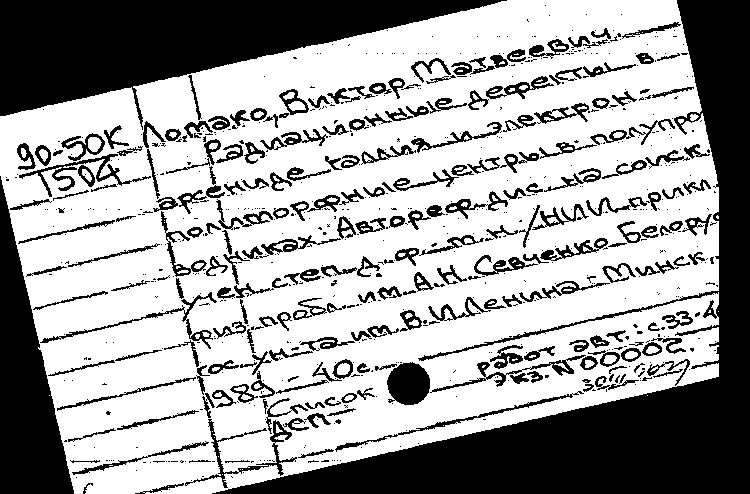 90-50К
1504
Ломако, Виктор Матвеевич.
Радиационные дефекты в
арсениде галлия и электрон-
политорфные центры в полупро
водниках: Автореф. дис. на соиск.
учен. степ. д. ф.-м. н. /НИИ прикл.
физ. пробл. им. А.Н. Севченко Белорус
гос. ун-та им. В.И. Ленина - Минск,
1989 - 40с.
Список работ авт.: с.33-4
ДСП. Экз. N 00002.